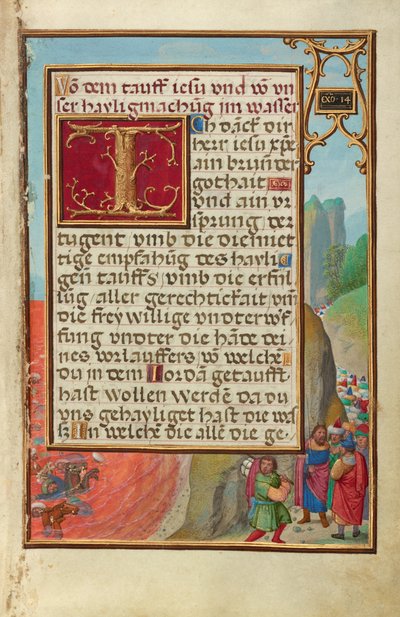 Vō dem tauff iesu vnd vō vn
ser hayligmachūg jm wasser
Ich danck dir
herr iesu xp̄e
ain brūn der
gothait
vnd ain vr
sprung der
tugent, vmb die diemiet
tige empfahūg des hayli
gen tauffs, vmb die erful
lūg aller gerechtickait, vn̄
die freywillige vndterw̄f
fung vndter die hāde dei
nes vorlauffers, vō welchē
du in dem Jordā getaufft
hast wollen werden da du
vns gehayliget hast die wa
sz In welchē die alle die ge.
EXO · 14